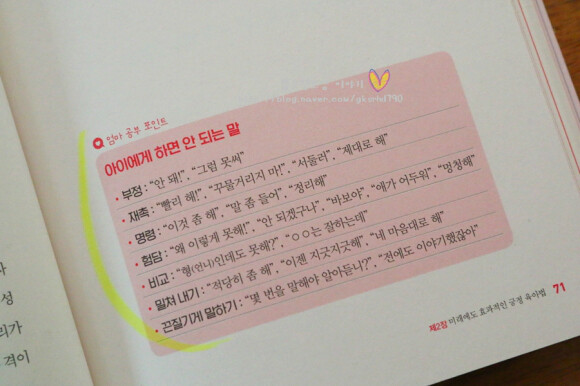 이야기
blog.naver.com/gkarlal790
엄마 공부 포인트
아이에게 하면 안 되는 말
• 부정 : “안 돼!”, “그럼 못써”
• 재촉 : “빨리 해!”, “꾸물거리지 마!”, “서둘러”, “제대로 해”
• 명령 : “이것 좀 해”, “말 좀 들어”, “정리해”
• 험담 : “왜 이렇게 못해!”, “안 되겠구나”, “바보야”, “애가 어두워”, “멍청해”
• 비교 : “형(언니)인데도 못해?”, “○○는 잘하는데”
• 밀쳐 내기 : “적당히 좀 해”, “이젠 지긋지긋해”, “네 마음대로 해”
• 끈질기게 말하기 : “몇 번을 말해야 알아듣니?”, “전에도 이야기했잖아”
제2장 미래에도 효과적인 긍정 육아법 71
성
리가
격이